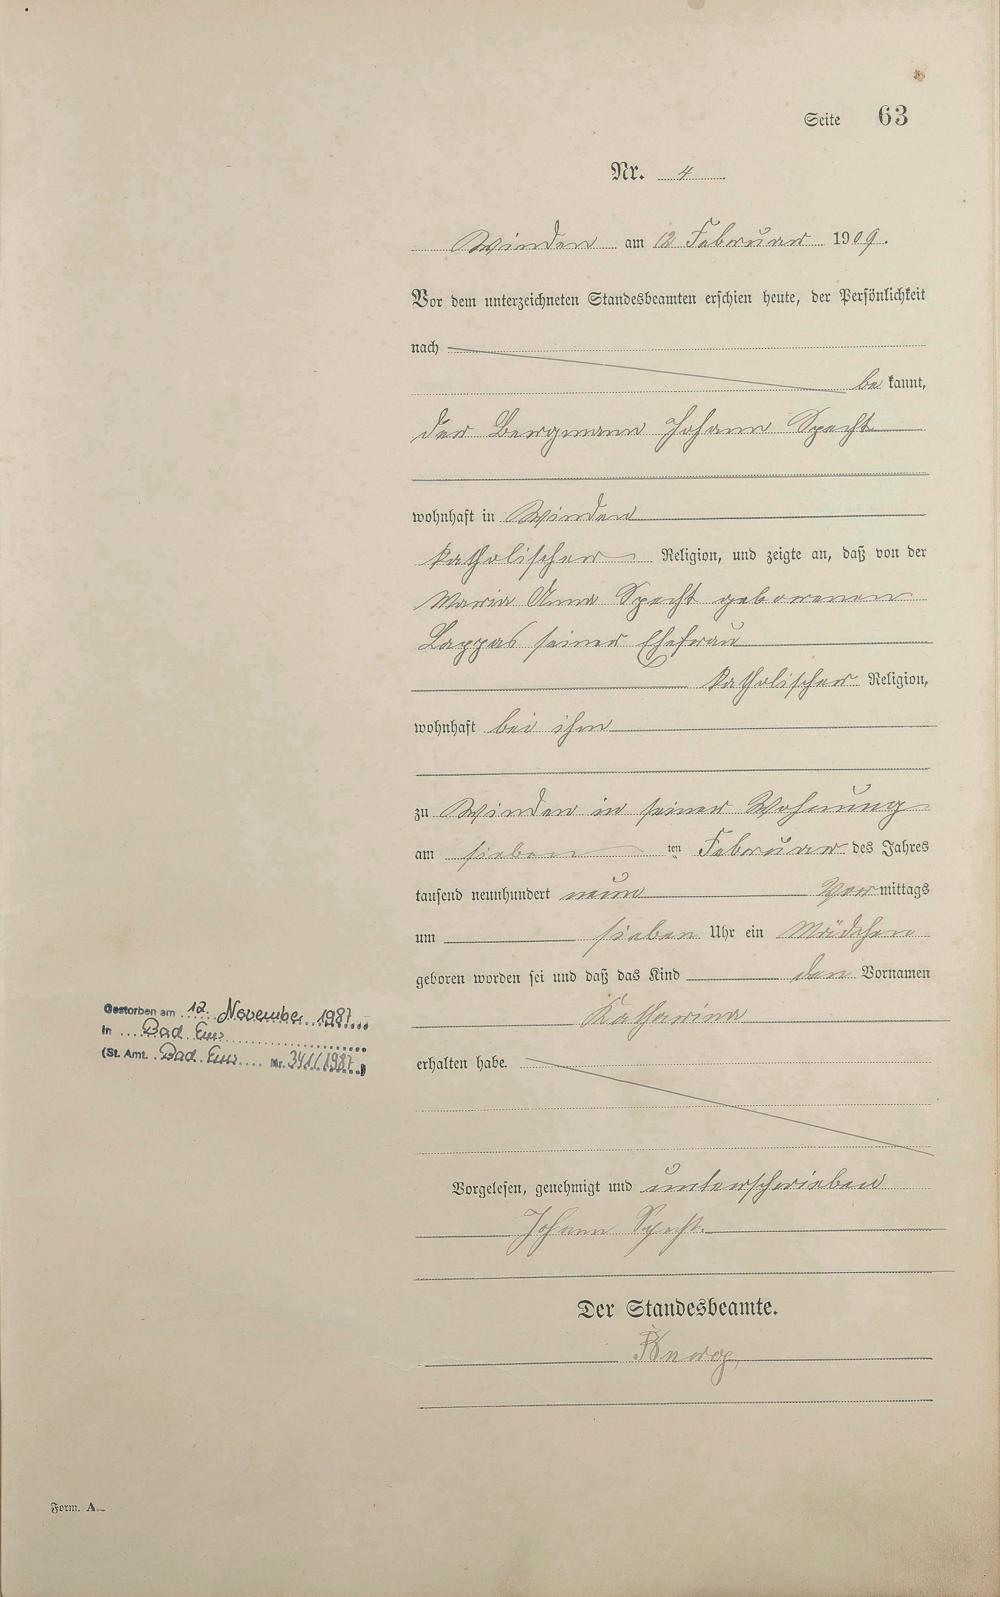 Seite 63
Nr. 4
Winden am 12 Februar 1909.
Vor dem unterzeichneten Standesbeamten erschien heute, der Persönlichkeit
nach
be kannt,
der Bergmann Johann Specht
wohnhaft in Winden
katholischer Religion, und zeigte an, daß von der
Maria Anna Specht geborenen
Lappas seiner Ehefrau
katholischer Religion,
wohnhaft bei ihm
zu Winden in seiner Wohnung
am sieben ten Februar des Jahres
tausend neunhundert neun Vor mittags
um sieben Uhr ein Mädchen
geboren worden sei und daß das Kind den Vornamen
Katharina
erhalten habe.
Gestorben am 12. November 1987
in Bad Ems
(St. Amt. Bad Ems Nr. 341/1987)
Vorgelesen, genehmigt und unterschrieben
Johann Specht.
Der Standesbeamte.
Form. A.